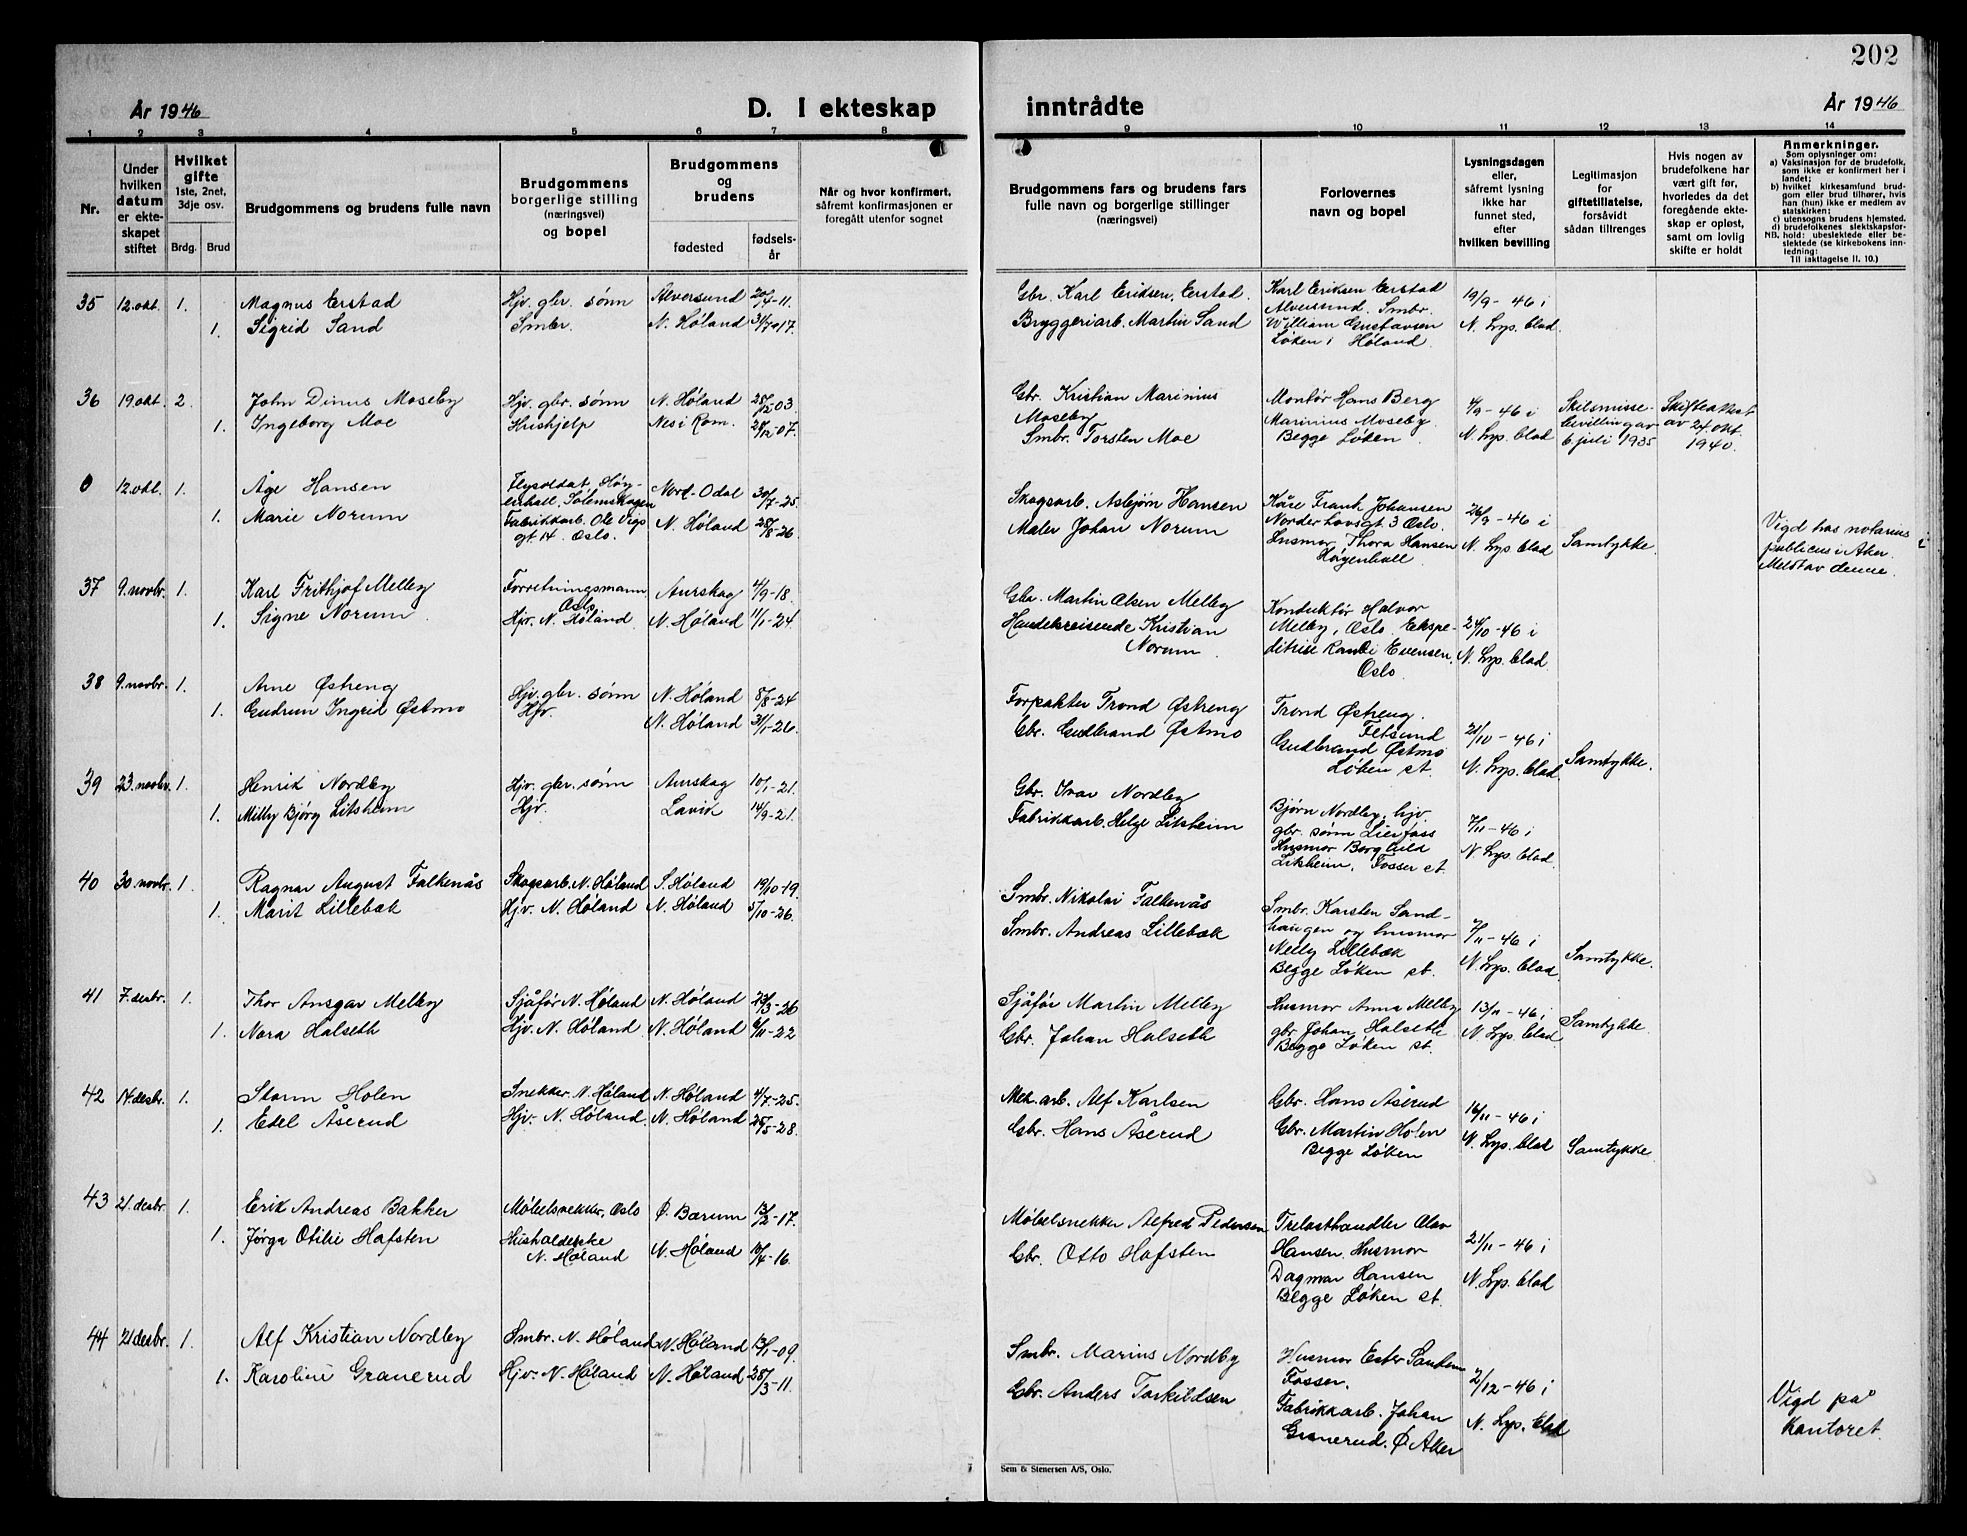 202
År 1946
D. I ekteskap
inntrådte
År 1946
1 2 3 4 5 6 7 8 9 10 11 12 13 14
Nr.
Under
hvilken
datum
er ekte-
skapet
stiftet
Hvilket
gifte
1ste, 2net,
3dje osv.
Brdg. Brud
Brudgommens og brudens fulle navn
Brudgommens
borgerlige stilling
(næringsvei)
og bopel
Brudgommens
og
brudens
fødested
fødsels-
år
Når og hvor konfirmert,
såfremt konfirmasjonen er
foregått utenfor sognet
Brudgommens fars og brudens fars
fulle navn og borgerlige stillinger
(næringsvei)
Forlovernes
navn og bopel
Lysningsdagen
eller,
såfremt lysning
ikke har
funnet sted,
efter
hvilken bevilling
Legitimasjon
for
giftetillatelse,
forsåvidt
sådan tiltrenges
Hvis nogen av
brudefolkene har
vært gift før,
hvorledes da det
foregående ekte-
skap er opløst,
samt om lovlig
skifte er holdt
Anmerkninger.
Som oplysninger om:
a) Vaksinasjon for de brudefolk,
som ikke er konfirmert her i
landet;
b) hvilket kirkesamfund brud-
gom eller brud tilhører, hvis
han (hun) ikke er medlem av
statskirken;
c) utensogns brudens hjemsted.
d) brudefolkenes slektskapsfor-
NB. hold: ubeslektede eller be-
slektede (se kirkebokens inn-
ledning:
Til iakttagelse II. 10.)
35 12.okt. 1. Magnus Erstad Hjv. gbr. sønn Alversund 20/4-11.
1. Sigrid Sand Smbr. N. Høland 31/7-17.
Gbr. Karl Eriksen Erstad.
Bryggeriarb. Martin Sand
Karl Eriksen Erstad
Alversund. Smbr.
William Gustavsen
Løken i Høland.
19/9-46 i
N. Lys. blad.
36 19.okt. 2. John Dinus Moseby Hjv. gbr. sønn N. Høland 28/12-03
1. Ingeborg Moe Hushjelp Nes i Rom. 28/12-07.
Gbr. Kristian Marinius
Moseby
Smbr. Torsten Moe
Montør Hans Berg
Marinius Moseby
Begge Løken.
4/9-46 i
N. Lys. blad
Skilsmisse-
bevilling av
6 juli 1935
Skifteattest
av 24. okt.
1940.
0 12.okt. 1. Åge Hansen Flysoldat, Høy-
enhall, Solemskogen Nord-Odal 30/7-25.
1. Marie Norum Fabrikkarb. Ole Vigs
gt 14. Oslo. N. Høland 28/8-26.
Skogsarb. Asbjørn Hansen
Maler Johan Norum
Kåre Frank Johansen
Norderhovsgt 3 Oslo.
Husmor Thora Hansen
Høyenhall
26/9-46 i
N. Lys blad
Samtykke.
Vigd hos notarius
publicus i Aker.
Meldt av denne.
37 9.novbr. 1. Karl Frithjof Melby Forretningsmann
Oslo Aurskog 4/9-18.
1. Signe Norum. Hjv. N. Høland N. Høland 11/1-24.
Gbr. Martin Olsen Melby
Handelsreisende Kristian
Norum.
Konduktør Halvor
Melby, Oslo. Ekspe-
ditrise Randi Evensen.
Oslo.
24/10-46 i
N. Lys. blad.
38 9.novbr. 1. Arne Østreng Hjv. gbr. sønn N. Høland 8/8-24
1. Gudrun Ingrid Østmo Hjv. N. Høland 31/1-26.
Forpakter Trond Østreng
Gbr. Gudbrand Østmo
Trond Østreng.
Fetsund
Gudbrand Østmo
Løken st.
21/10-46 i
N. Lys. blad
Samtykke.
39 23.novbr. 1. Henrik Nordby Hjv. gbr. sønn Aurskog 10/1-21.
1. Milly Bjørg Litsheim Hjv. Lavik 14/9-21.
Gbr. Ivar Nordby
Fabrikkarb. Helge Litsheim
Bjørn Nordby, hjv.
gbr. sønn Lierfoss
Husmor Borghild
Litsheim, Fosser st.
7/11-46 i
N. Lys. blad.
40 30.novbr. 1. Ragnar August Falkenås Skogsarb. N. Høland S. Høland 19/10-19.
1. Marit Lillebæk Hjv. N. Høland N. Høland 5/10-26.
Smbr. Nikolai Falkenås
Smbr. Andreas Lillebæk
Smbr. Karsten Sand-
haugen og husmor
Nelly Lillebæk
Begge Løken st.
7/11-46 i
N. Lys. blad
Samtykke.
41 7.desbr. 1. Thor Ansgar Melby Sjåfør N. Høland N. Høland 23/3-26
1. Nora Halseth Hjv. N. Høland N. Høland 6/11-22
Sjåfør Martin Melby
Gbr. Johan Halseth
Husmor Anna Melby
gbr. Johan Halseth
Begge Løken st.
13/11-46 i
N. Lys. blad
Samtykke.
42 14.desbr. 1. Storm Holen Snekker N. Høland N. Høland 4/7-25.
1. Edel Åserud Hjv. N. Høland. N. Høland 25/5-28.
Mek. arb. Alf Karlsen
Gbr. Hans Åserud
Gbr. Hans Åserud
Gbr. Martin Holen
Begge Løken
16/11-46 i
N. Lys. blad
Samtykke.
43 21.desbr. 1. Erik Andreas Bakker Møbelsnekker, Oslo Ø. Bærum 13/2-17.
1. Jørga Otilie Hafsten Husholderske
N. Høland N. Høland 10/4-16.
Møbelsnekker Alfred Pedersen
Gbr. Otto Hafsten
Trelasthandler Olav
Hansen. Husmor
Dagmar Hansen
Begge Løken st.
21/11-46 i
N. Lys. blad
44 21 desbr. 1. Alf Kristian Nordby Smbr. N. Høland N. Høland 13/1-09.
1. Karolini Granerud Hjv. N. Høland N. Høland 25/3-11.
Smbr. Marius Nordby
Gbr. Anders Torkildsen
Husmor Ester
Fosser.
Fabrikkarb. Johan
Granerud. Ø. Aker
2/12-46 i
N. Lys. blad
Vigd på
kontoret.
Sem & Stenersen A/S, Oslo.